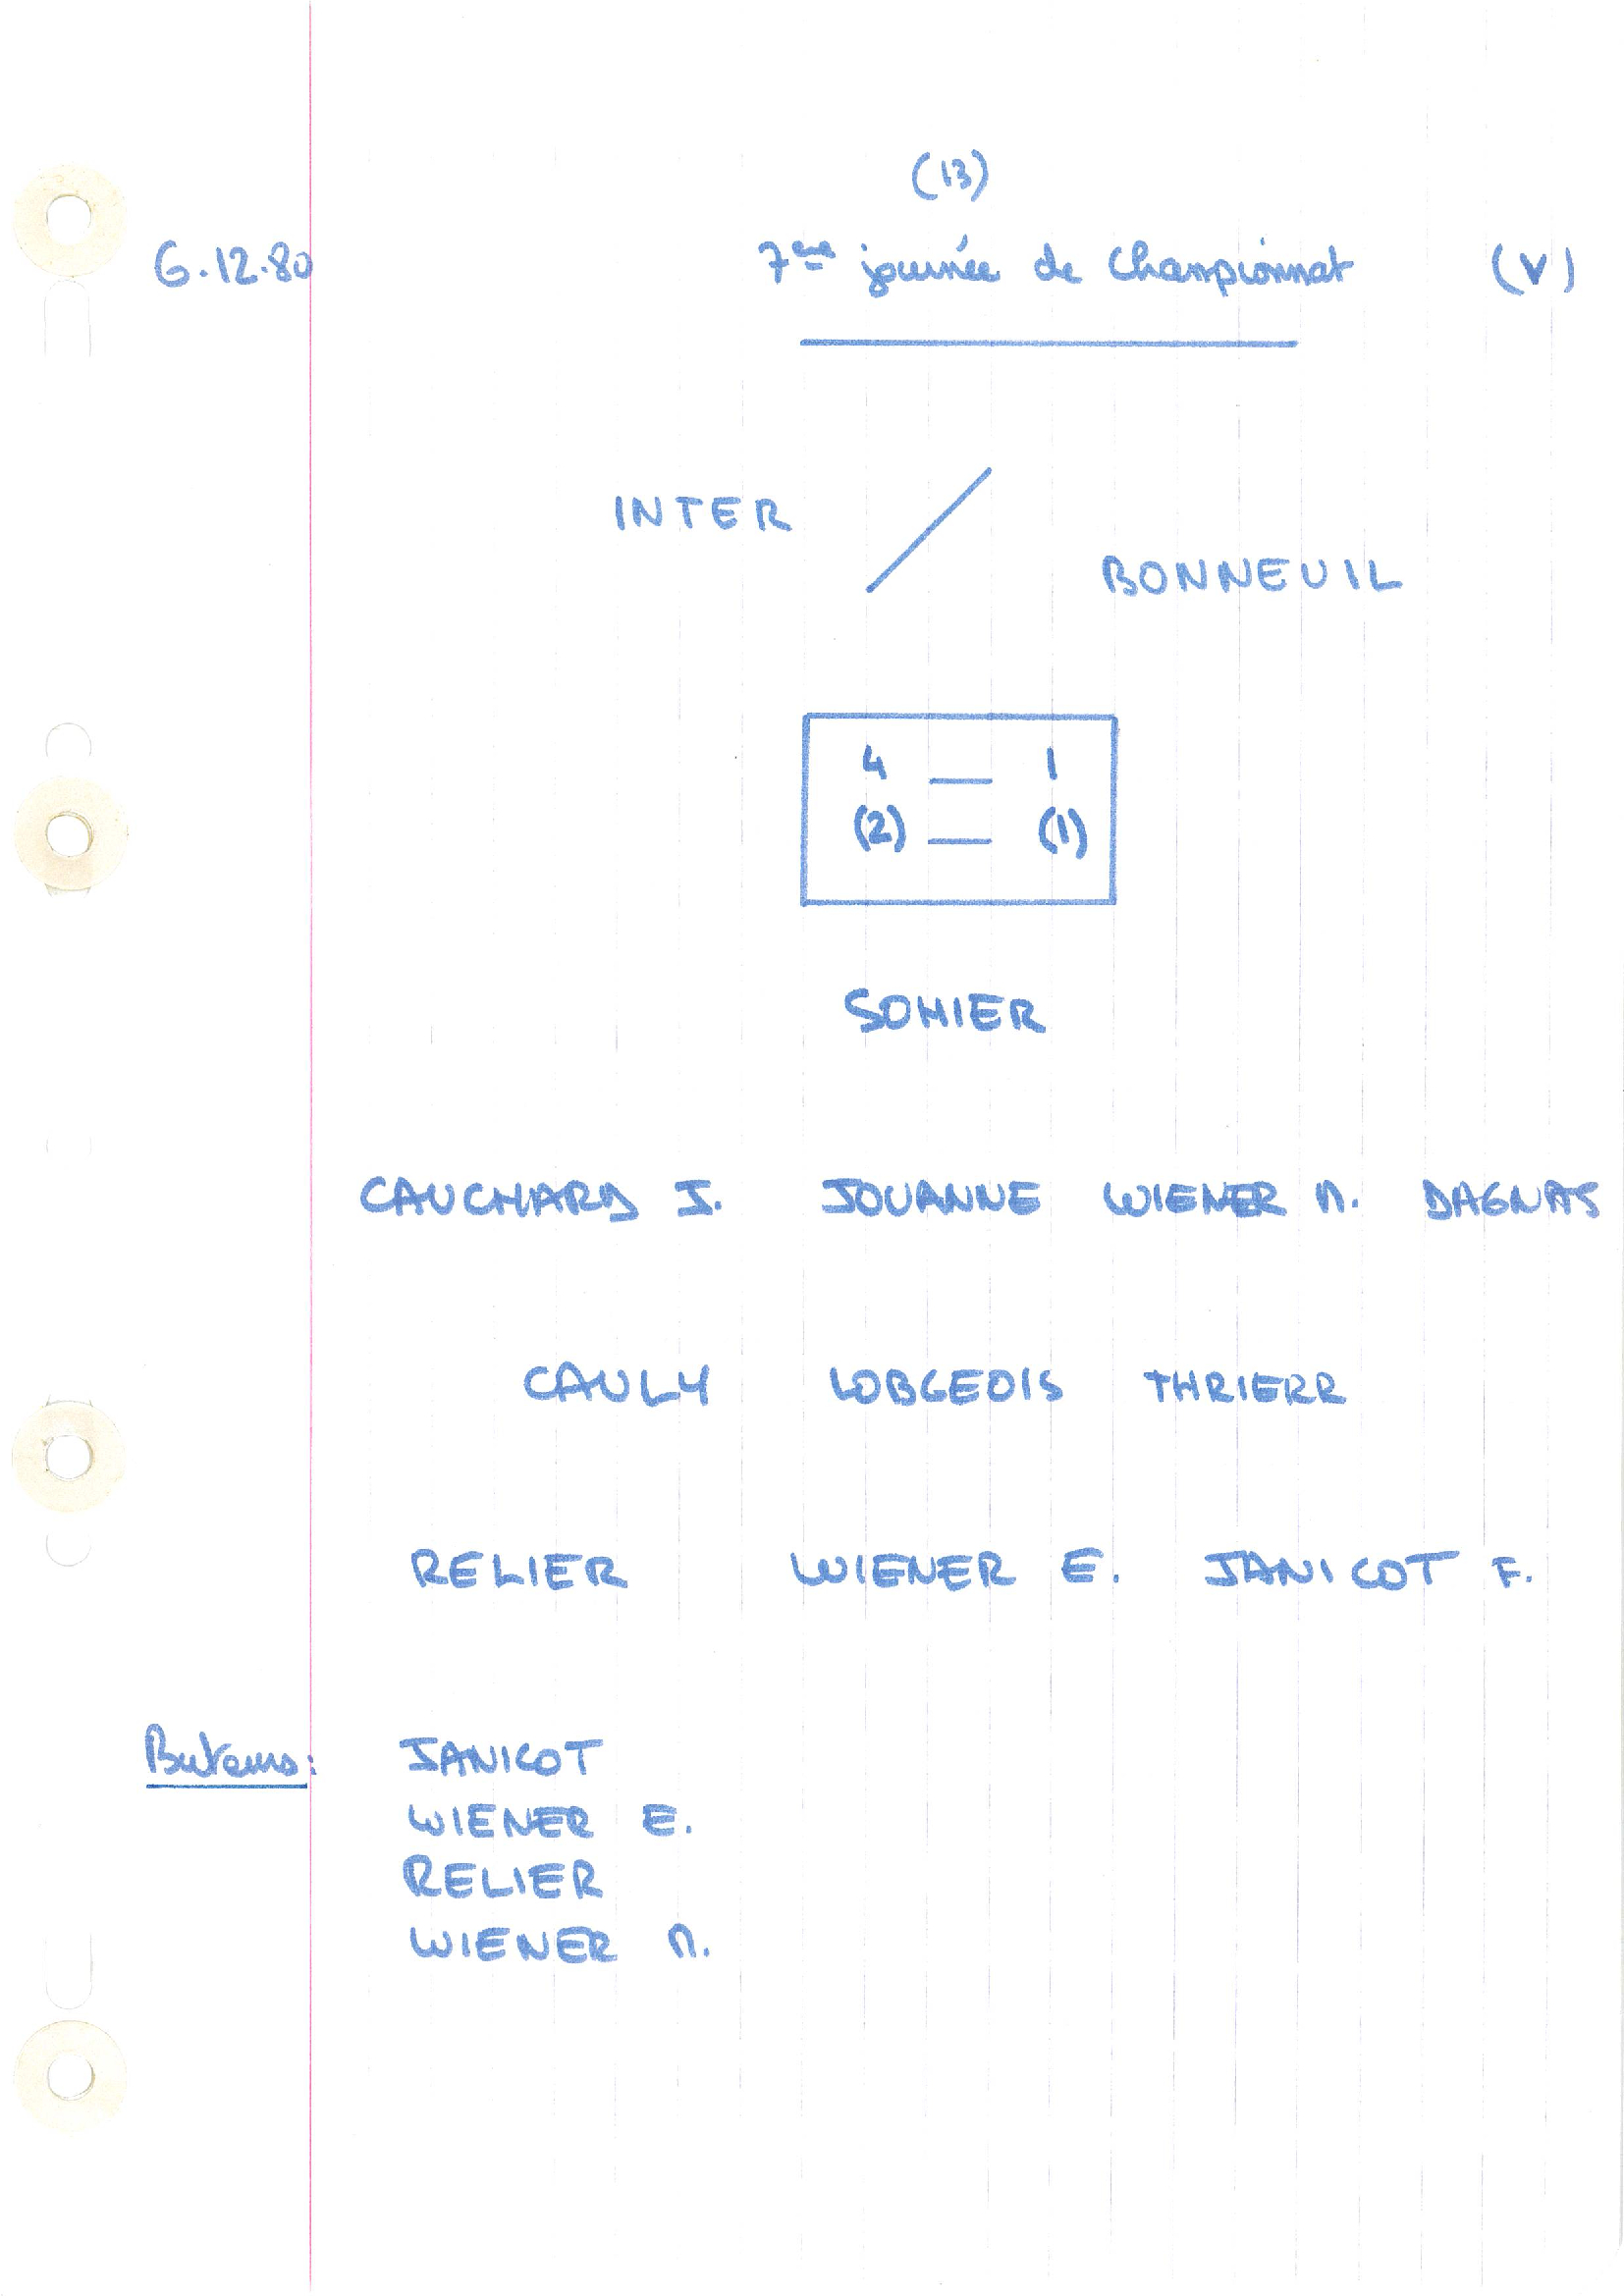 (13)
6.12.80 7ème journée de Championnat (V)
INTER / BONNEUIL
4 — 1
(2) — (1)
SOHIER
CAUCHARD J. JOUANNE WIENER M. DAGNAS
CAULY LOBGEOIS THRIERR
RELIER WIENER E. JANICOT F.
Buteurs: JANICOT
WIENER E.
RELIER
WIENER M.